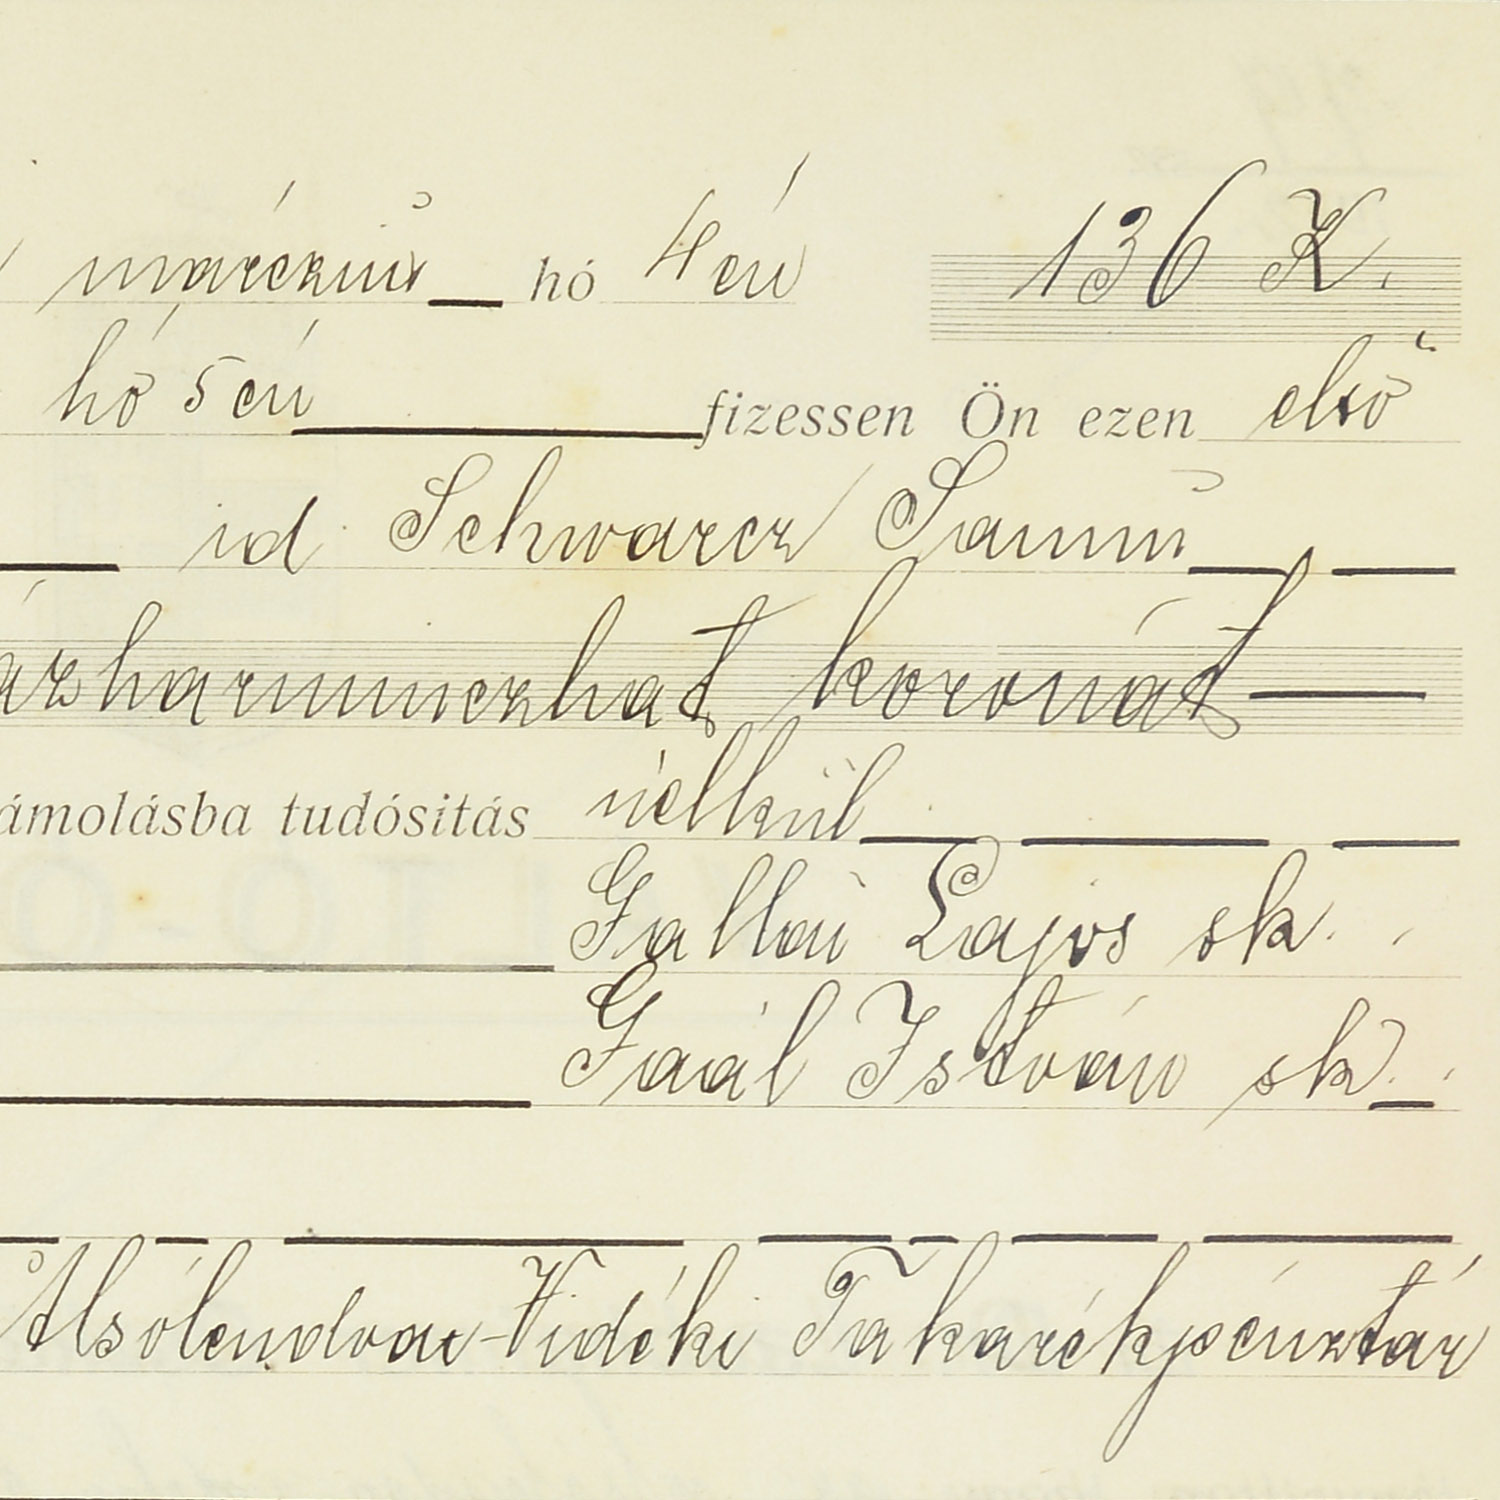 márczius hó 4én 136 K.
hó 5én fizessen Ön ezen első
id Schwarcz Samu
ázharminczhat koronát
ámolásba tudósitás nélkül
Gallai Lajos sk.
Gaál István sk.
Alsólendva-Vidéki Takarékpénztár